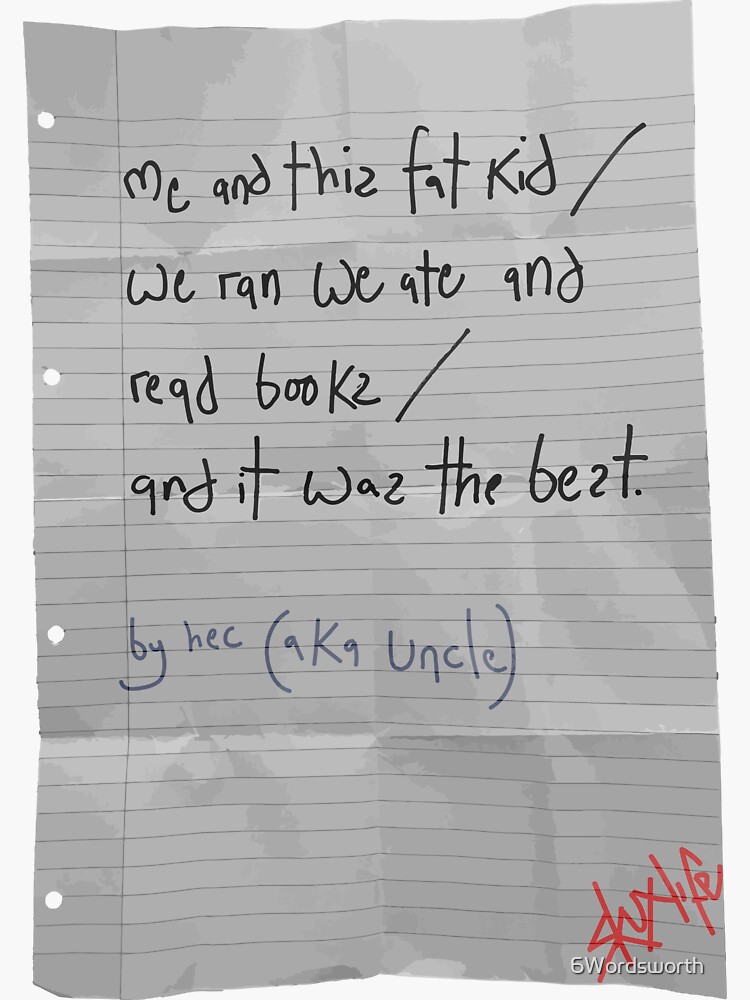 me and thiz fat kid /
we ran we ate and
read bookz /
and it waz the bezt.
by hec (aka uncle)
skuxlife
6Wordsworth